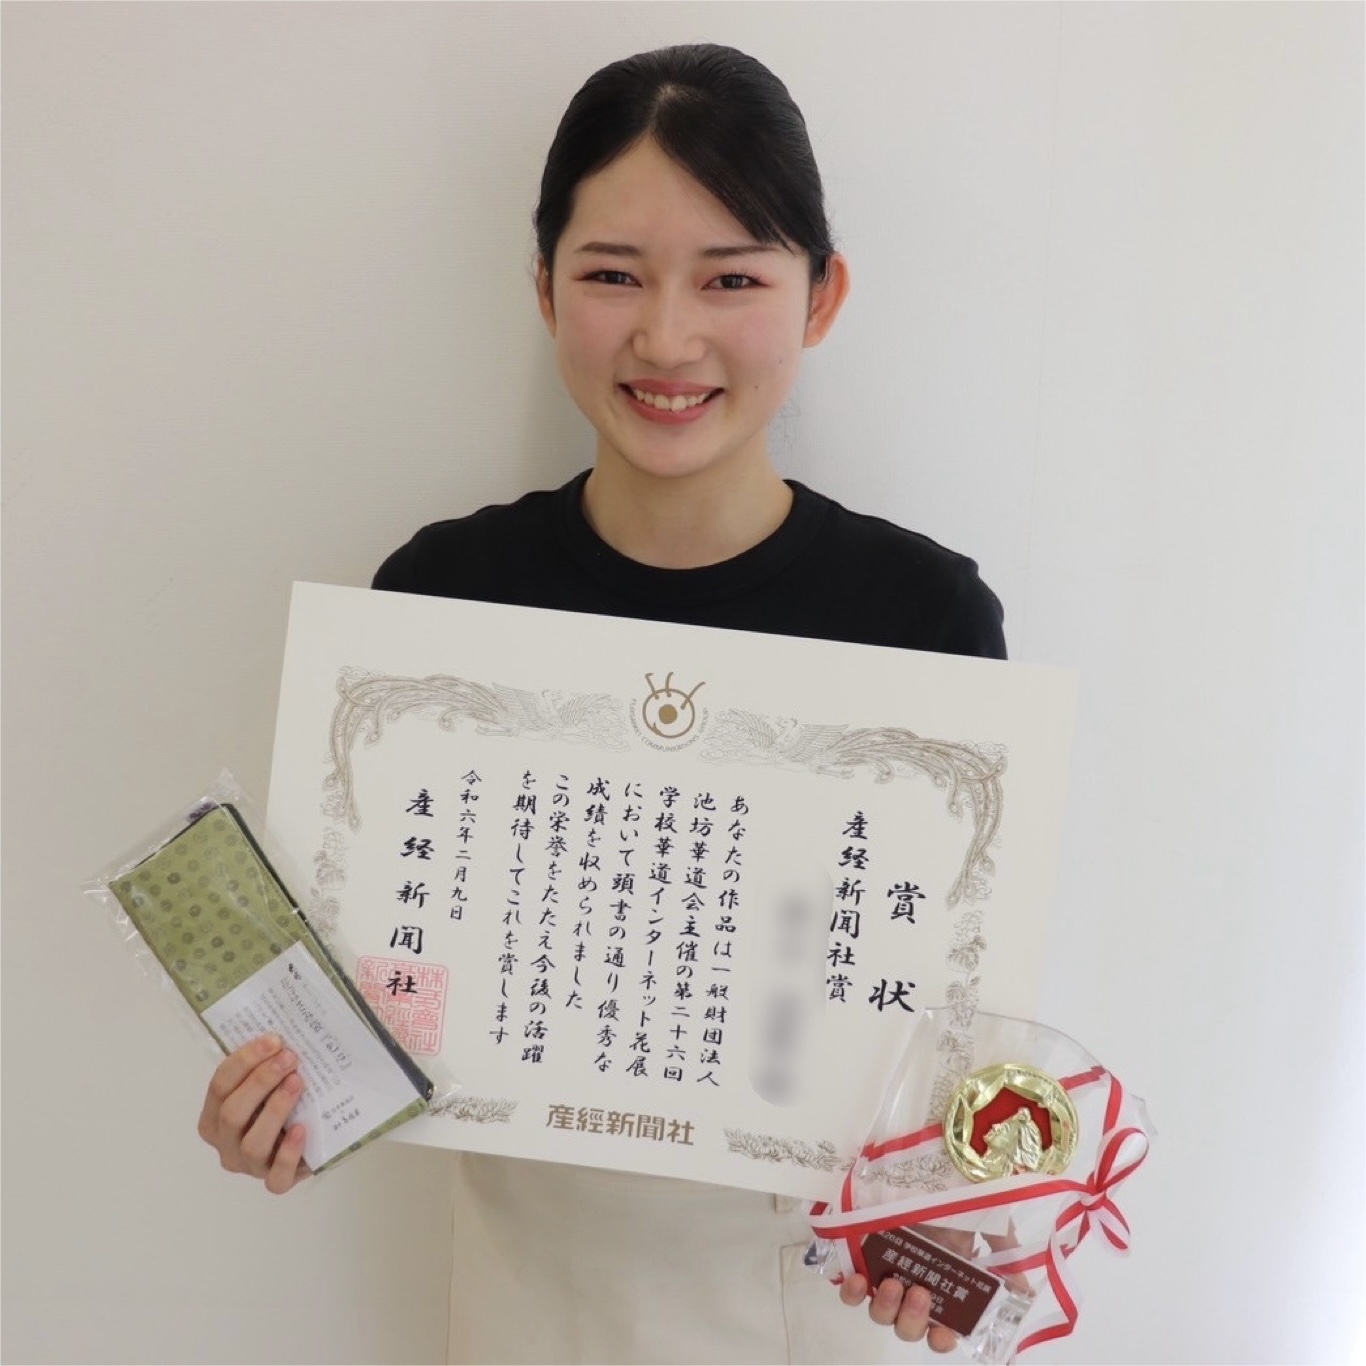 賞状
産経新聞社賞
あなたの作品は一般財団法人
池坊華道会主催の第二十六回
学校華道インターネット花展
において頭書の通り優秀な
成績を収められました
この栄誉をたたえ今後の活躍
を期待してこれを賞します
令和六年二月九日
産経新聞社
産經新聞社
FUJISANKEI COMMUNICATIONS GROUP
第26回 学校華道インターネット花展
産経新聞社賞